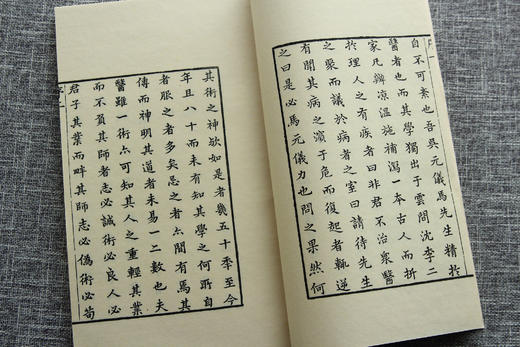 自不可紊也吾與元儀馬先生精於
醫者也而其學獨出于雲間沈李二
家凡辨涼溫施補瀉一本古人而折
於理人之有疾者曰非君不治衆醫
之聚而議於病者之室曰請待先生
有聞其病之濒于危而復起者輒逆
之曰是必馬元儀力也問之果然何
其術之神欬如是者幾五十季至今
年且八十而未有知其學之何所自
者服之者多矣忌之者亦間有焉其
傳而神明其道者未易一二數也夫
醫雖一術亦可知其人之重輕其業
而不負其師者志必誠術必良人必
君子其業而畔其師志必偽術必苟